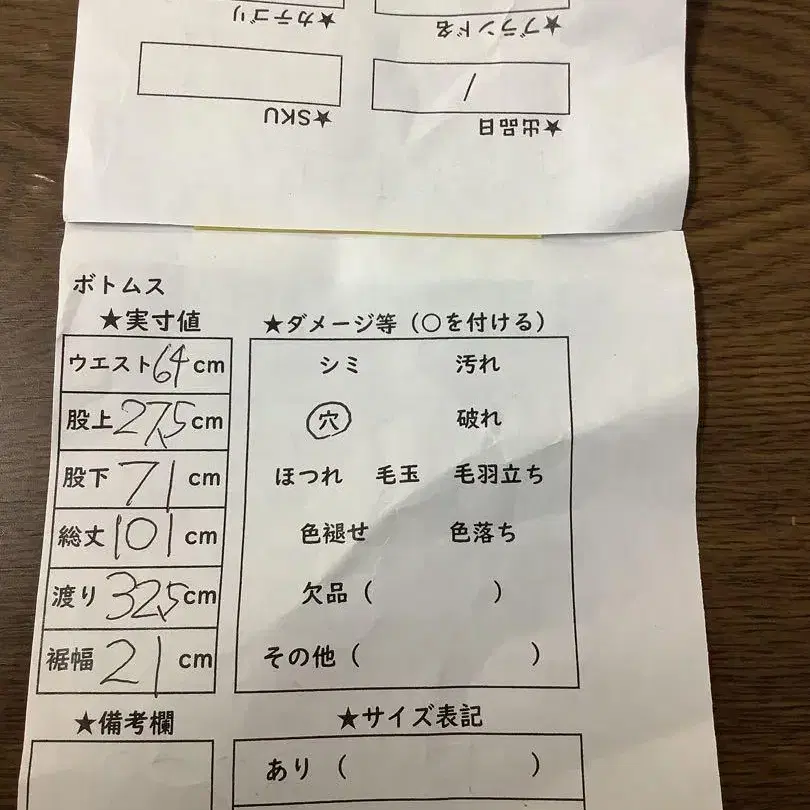 ★カテゴリ
★ブランド名
★SKU
★出品日
/
ボトムス
★実寸値
ウエスト64cm
股上27.5cm
股下71cm
総丈101cm
渡り32.5cm
裾幅21cm
★ダメージ等（○を付ける）
シミ 汚れ
穴 破れ
ほつれ 毛玉 毛羽立ち
色褪せ 色落ち
欠品（ ）
その他（ ）
★備考欄
★サイズ表記
あり（ ）